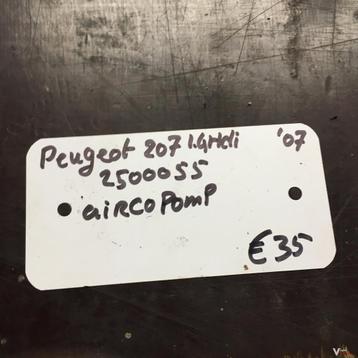 Peugeot 207 1.4Hdi '07
2500055
aiRCOPomP
€35